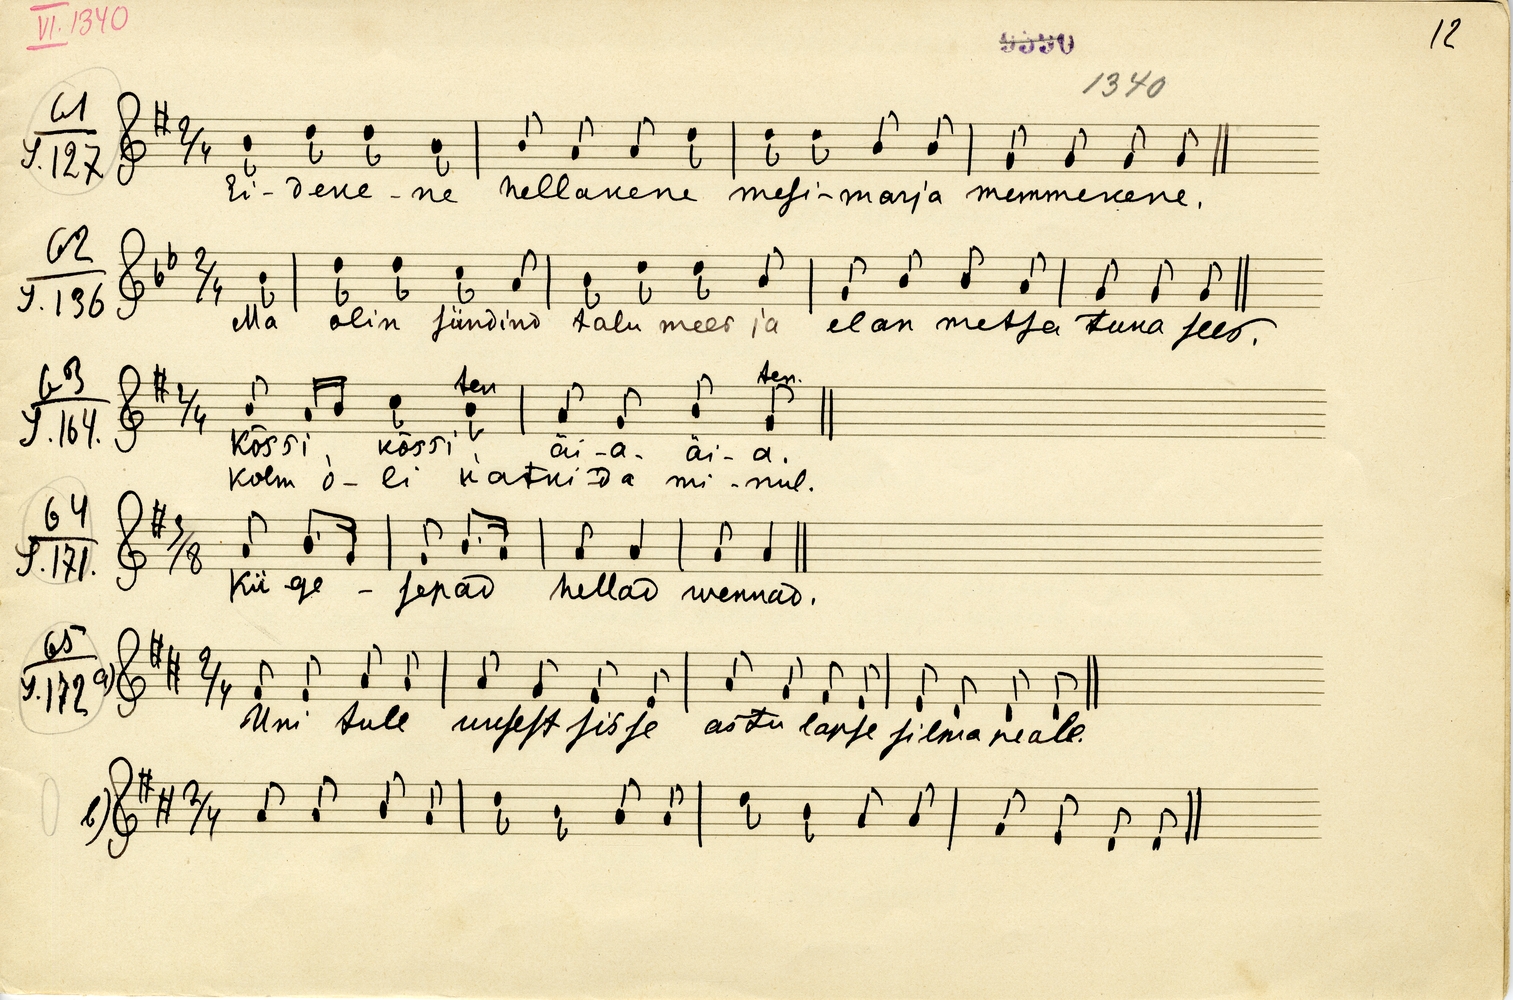 VI. 1340
9590
12
1340
61
S. 127
2/4
Ei-deke-ne hellakene mesi-marja memmekene.
62
S. 136
2/4
Ma olin sündind talu mees ja elan metsa tuka sees.
63
S. 164.
2/4
ten
ten.
Kõssi, kõssi, äi-a. äi-a.
Kolm o-li katki da mi-nul.
64
S. 171.
3/8
Kii-ge-sepad hellad wennad.
65
S. 172 a)
2/4
Uni tule uksest sisse astu lapse silma peale.
b)
2/4